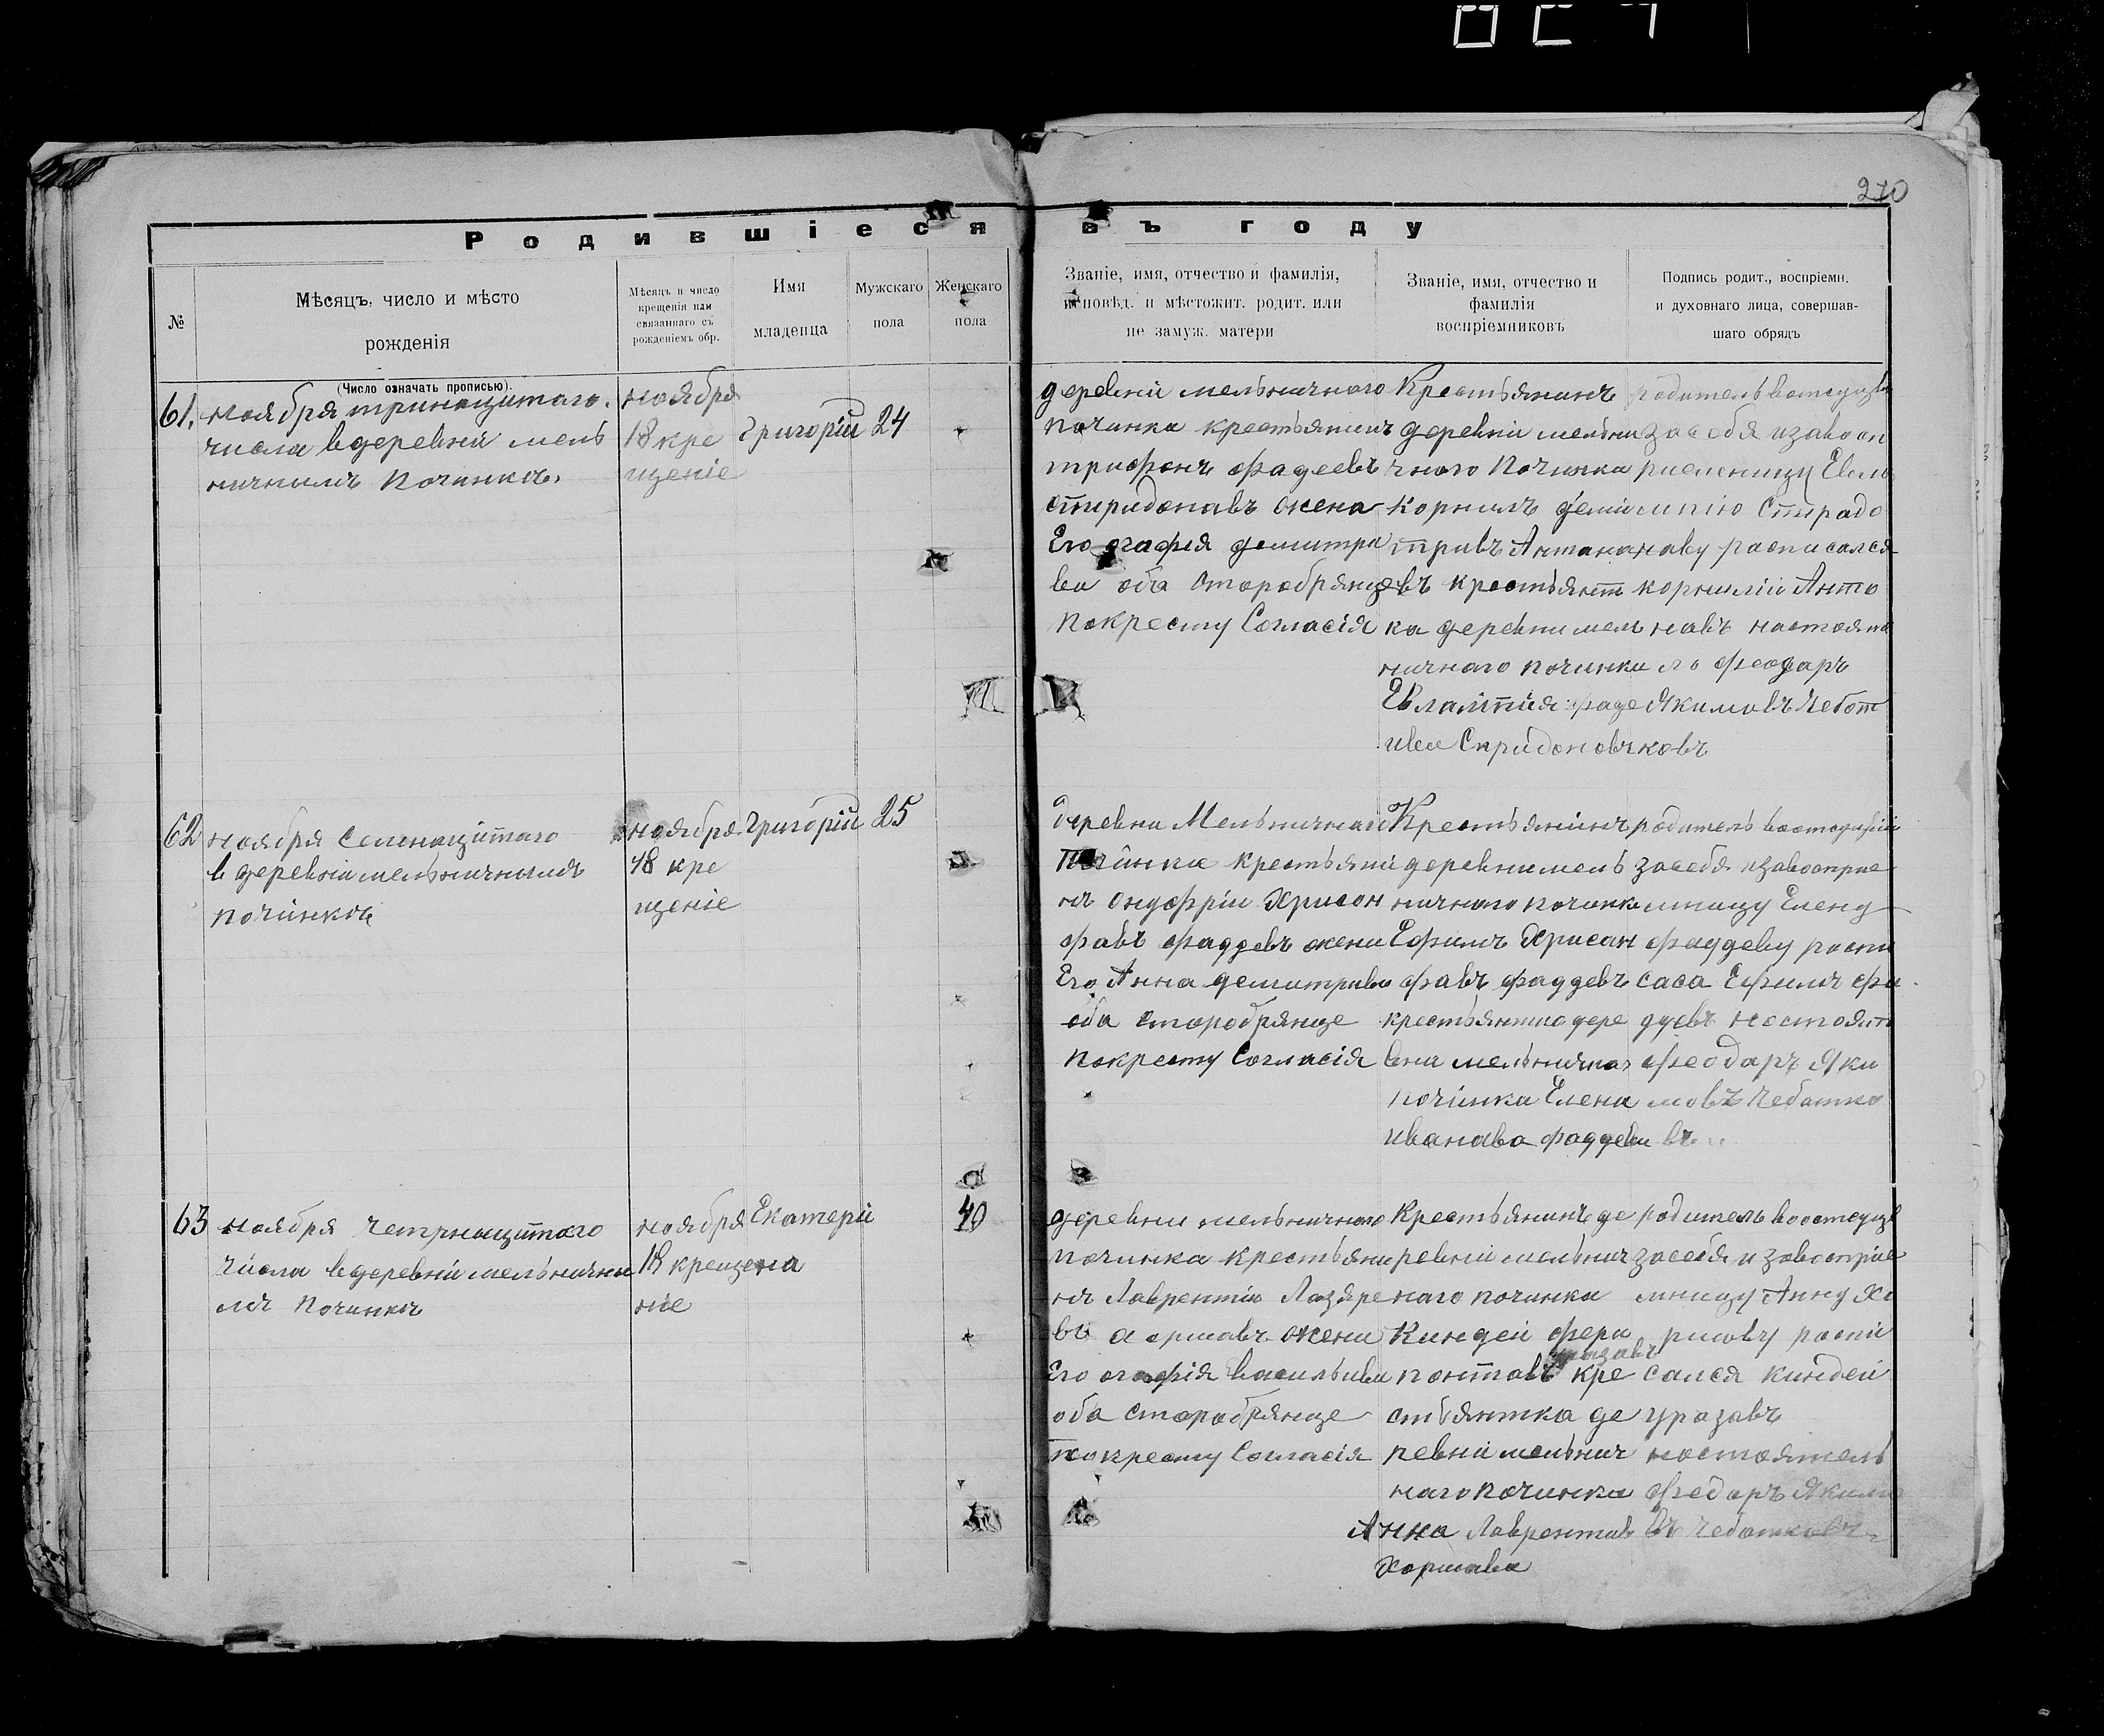 270
Родившіеся въ году
№
Мѣсяцъ, число и мѣсто
рожденія
(Число означать прописью).
Мѣсяцъ и число
крещенія или
связаннаго съ
рожденіемъ обр.
Имя
младенца
Мужскаго
пола
Женскаго
пола
Званіе, имя, отчество и фамилія,
исповѣд. и мѣстожит. родит. или
не замуж. матери
Званіе, имя, отчество и
фамилія
воспріемниковъ
Подпись родит., воспріемн.
и духовнаго лица, совершав-
шаго обрядъ
61.
ноября тринацитаго.
числа вдеревни мель
ничнымъ Починкъ.
ноября
18 кре
щеніе
Григорій
24
деревни мельничного
починка крестьянинъ
трифонъ фадеевъ
спиридонавъ жена
Его агафия демитри
ва оба старобрянце
покресту Согласія
Крестьянинъ
деревни мельни
чного Починка
Корнилъ деми
тривъ Антана
въ крестьянт
ка деревни мель
ничнаго починка
Евлампия фаде
ива Спридонов
родитель
засебя изавосп
риемницу Евла
мпію Спиридо
наву расписался
корнилій Анто
навъ настояте
ль феодаръ
Якимовъ Чебот
ковъ
62
ноября Семенацитаго
в деревни мельничнымъ
починкъ
ноября
18 кре
щеніе
Григорій
25
деревни Мельничнаго
Починка крестьяни
нъ Онуфрій Хрисан
фавъ фаддевъ жена
Его Анна демитрива
оба старобрянце
покресту Согласія
Крестьянинъ
деревни мель
ничнаго починка
Ефимъ Хрисан
фавъ фаддевъ
крестьянтка дере
вни мельнична
починка Елена
иванава фаддева
родитель
засебя изавосприе
мницу Елену
фаддеву распи
сася Ефимъ фа
ддевъ настоят
феодаръ Яки
мовъ Чеботко
въ
63
ноября четрнацитаго
числа вдеревни мельничны
мъ Починкъ
ноября
18 креще
ніе
Екатери
на
40
деревни мельничнаго
починка крестьяни
нъ Лаврентій Лазаре
въ жена
Его агафія васильива
оба старобрянце
покресту Согласія
Крестьянинъ де
ревни мельнич
наго починка
Киндей фера
понтавъ уразавъ кре
стьянтка де
ревни мельнич
наго починка
Анна Лаврентив
Хоршава
родитель
засебя и завосприе
мницу Анну Хо
ршову распи
сался киндей
уразавъ
настоятель
феодаръ Якимо
въ Чеботковъ